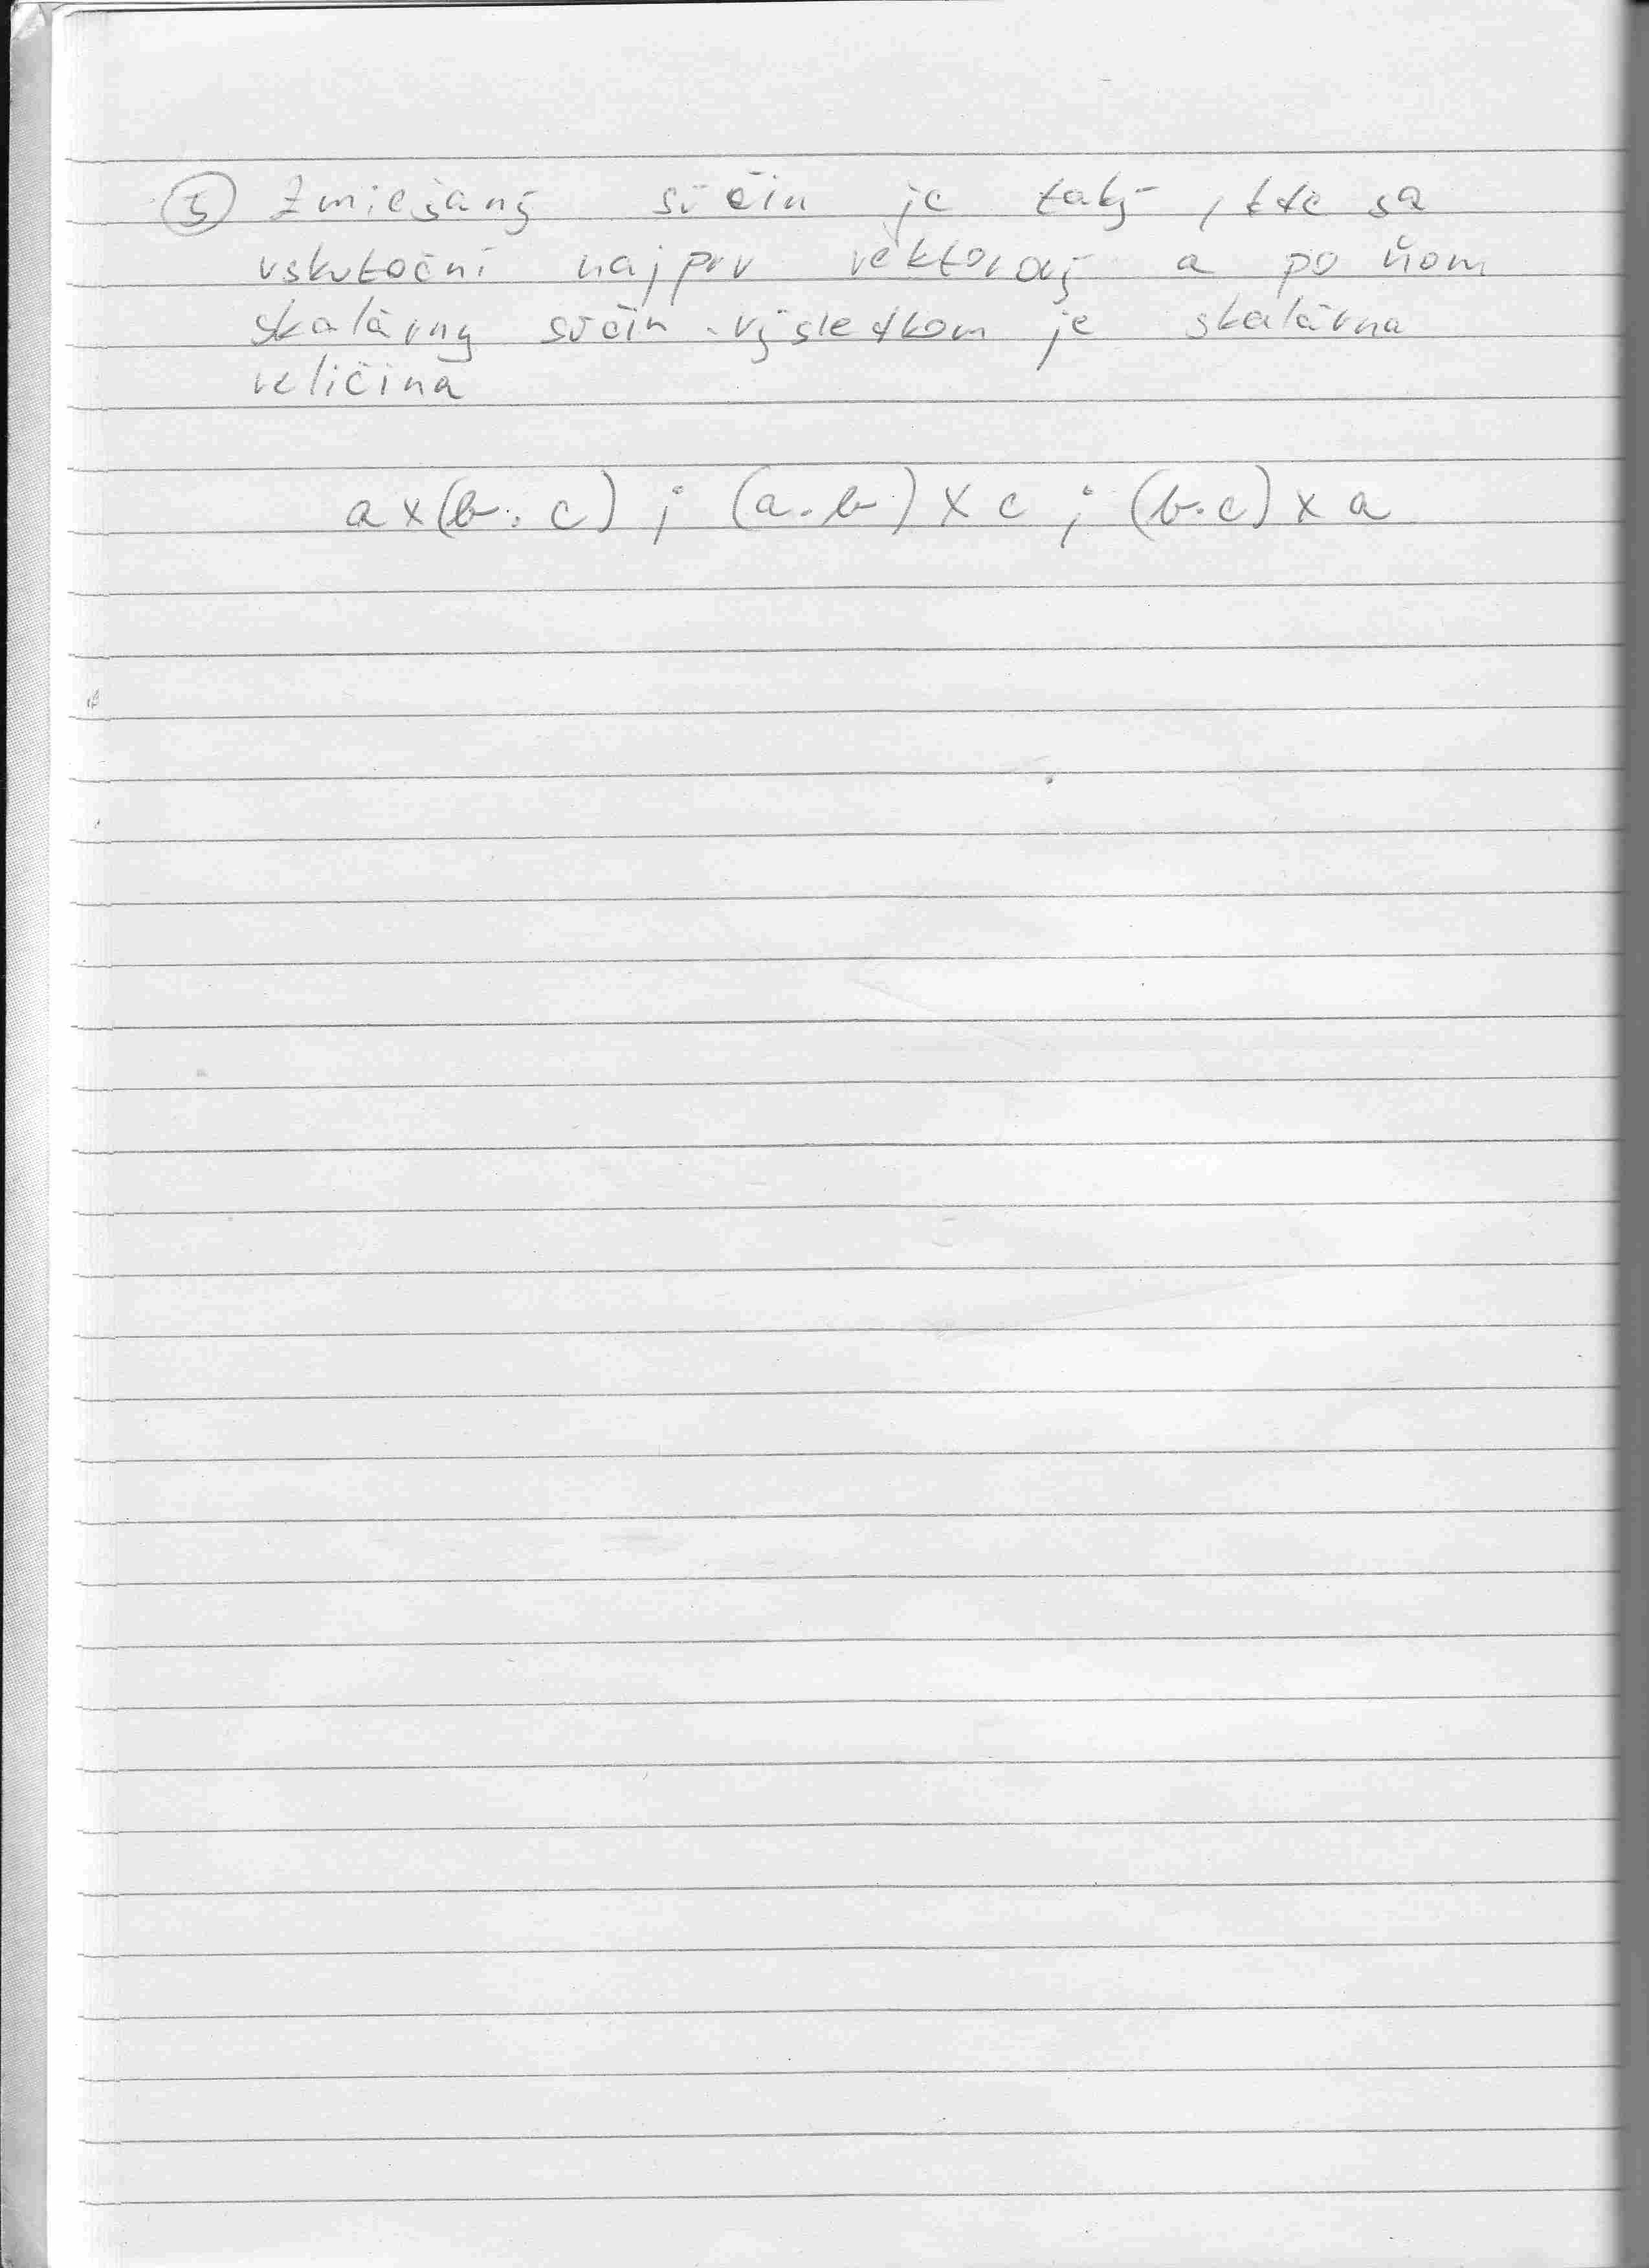 ⑤ Zmiešaný súčin je taký, kde sa
vskutoční najprv vektorový a po ňom
skalárny súčin. výsledkom je skalárna
veličina
a x (b . c) ; (a . b) x c ; (b . c) x a